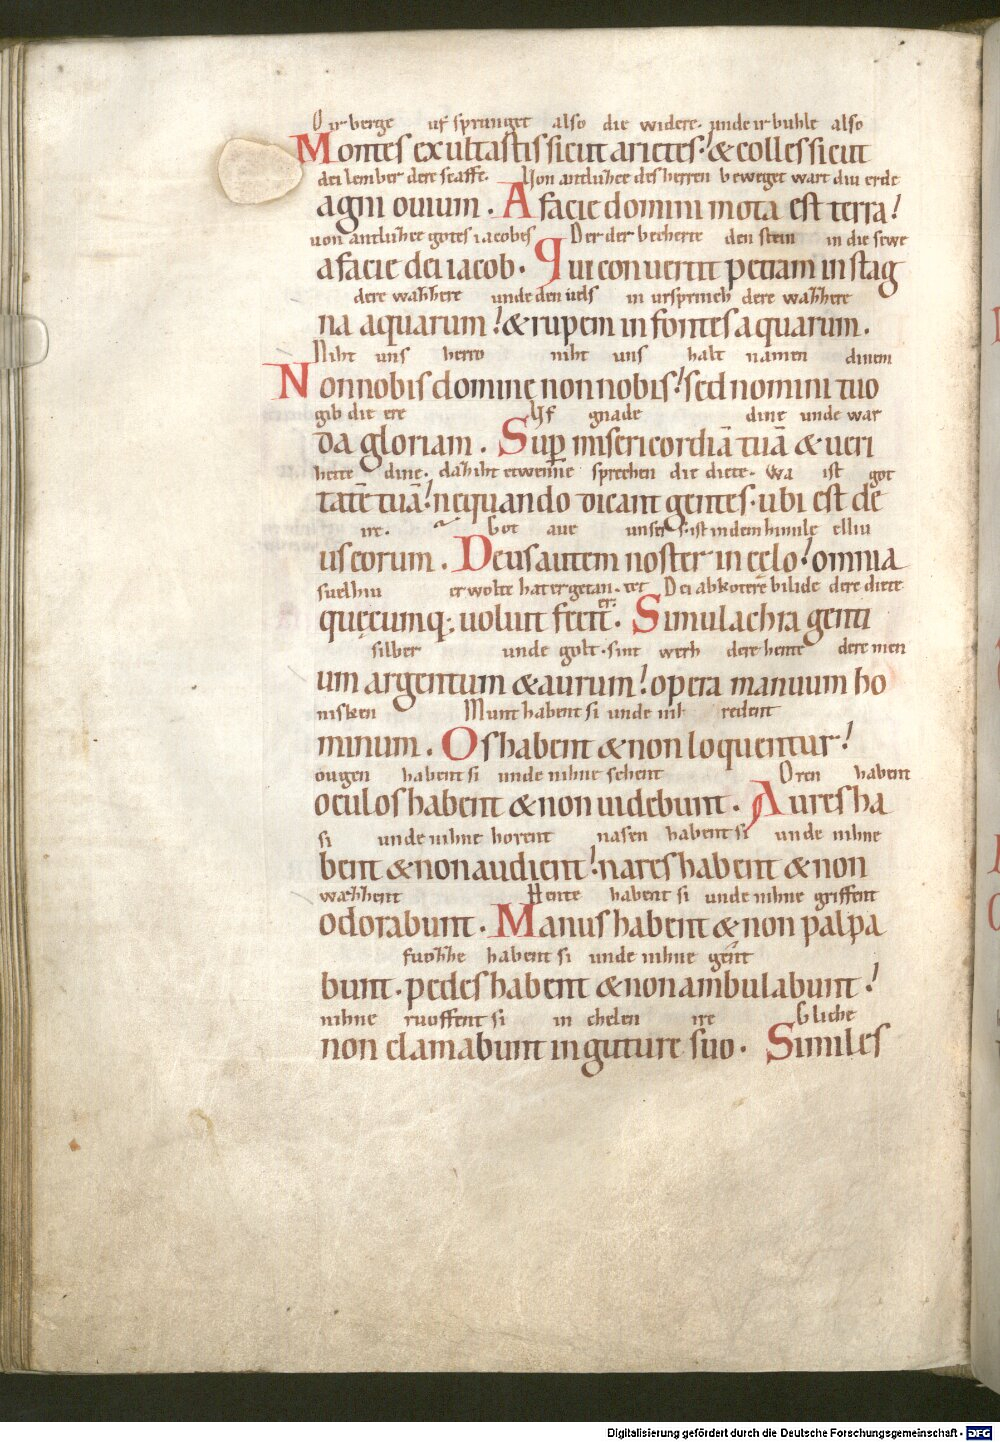 O ir berge uf sprunget also die widere. unde ir buhle also
Montes exultastis sicut arietes! & colles sicut
dei lember dere scaffe. Uon antluhce des herren beweget wart diu erde
agni ouium. A facie domini mota est terra!
uon antluhce gotes iacobes Der der becherte den stein in die sewe
a facie dei iacob. Qui conuertit petram in stag
dere wazzere unde den uels in ursprinch dere wazzere
na aquarum! & rupem in fontes aquarum.
Niht uns herro niht uns halt namen dinem
Non nobis domine non nobis! sed nomini tuo
gib die ere Uf gnade dine unde war
da gloriam. Sup misericordiā tuā & ueri
heite dine. daz iht etwenne sprechen die diete. wa ist got
tatē tuā! nequando dicant gentes. ubi est de
ire. Got aue unser ist in dem himile elliu
us eorum. Deus autem noster in celo! omnia
suelhiu er wolte hat er getan. Dei abkotere bilide dere diete
quęcumq; uoluit fecit. Simulachra genti
silber unde golt. sint werh dere hente dere men
um argentum & aurum! opera manuum ho
nisken Munt habent si unde nih redent
minum. Os habent & non loquentur!
ougen habent si unde nihne sehent Oren habent
oculos habent & non uidebunt. Aures ha
si unde nihne horent nasen habent si unde nihne
bent & non audient! nares habent & non
wazzent Hente habent si unde nihne griffent
odorabunt. Manus habent & non palpa
fuozze habent si unde nihne gent
bunt. pedes habent & non ambulabunt!
nihne ruoffent si in chelen ire Gliche
non clamabunt in guture suo. Similes
Digitalisierung gefördert durch die Deutsche Forschungsgemeinschaft - DFG